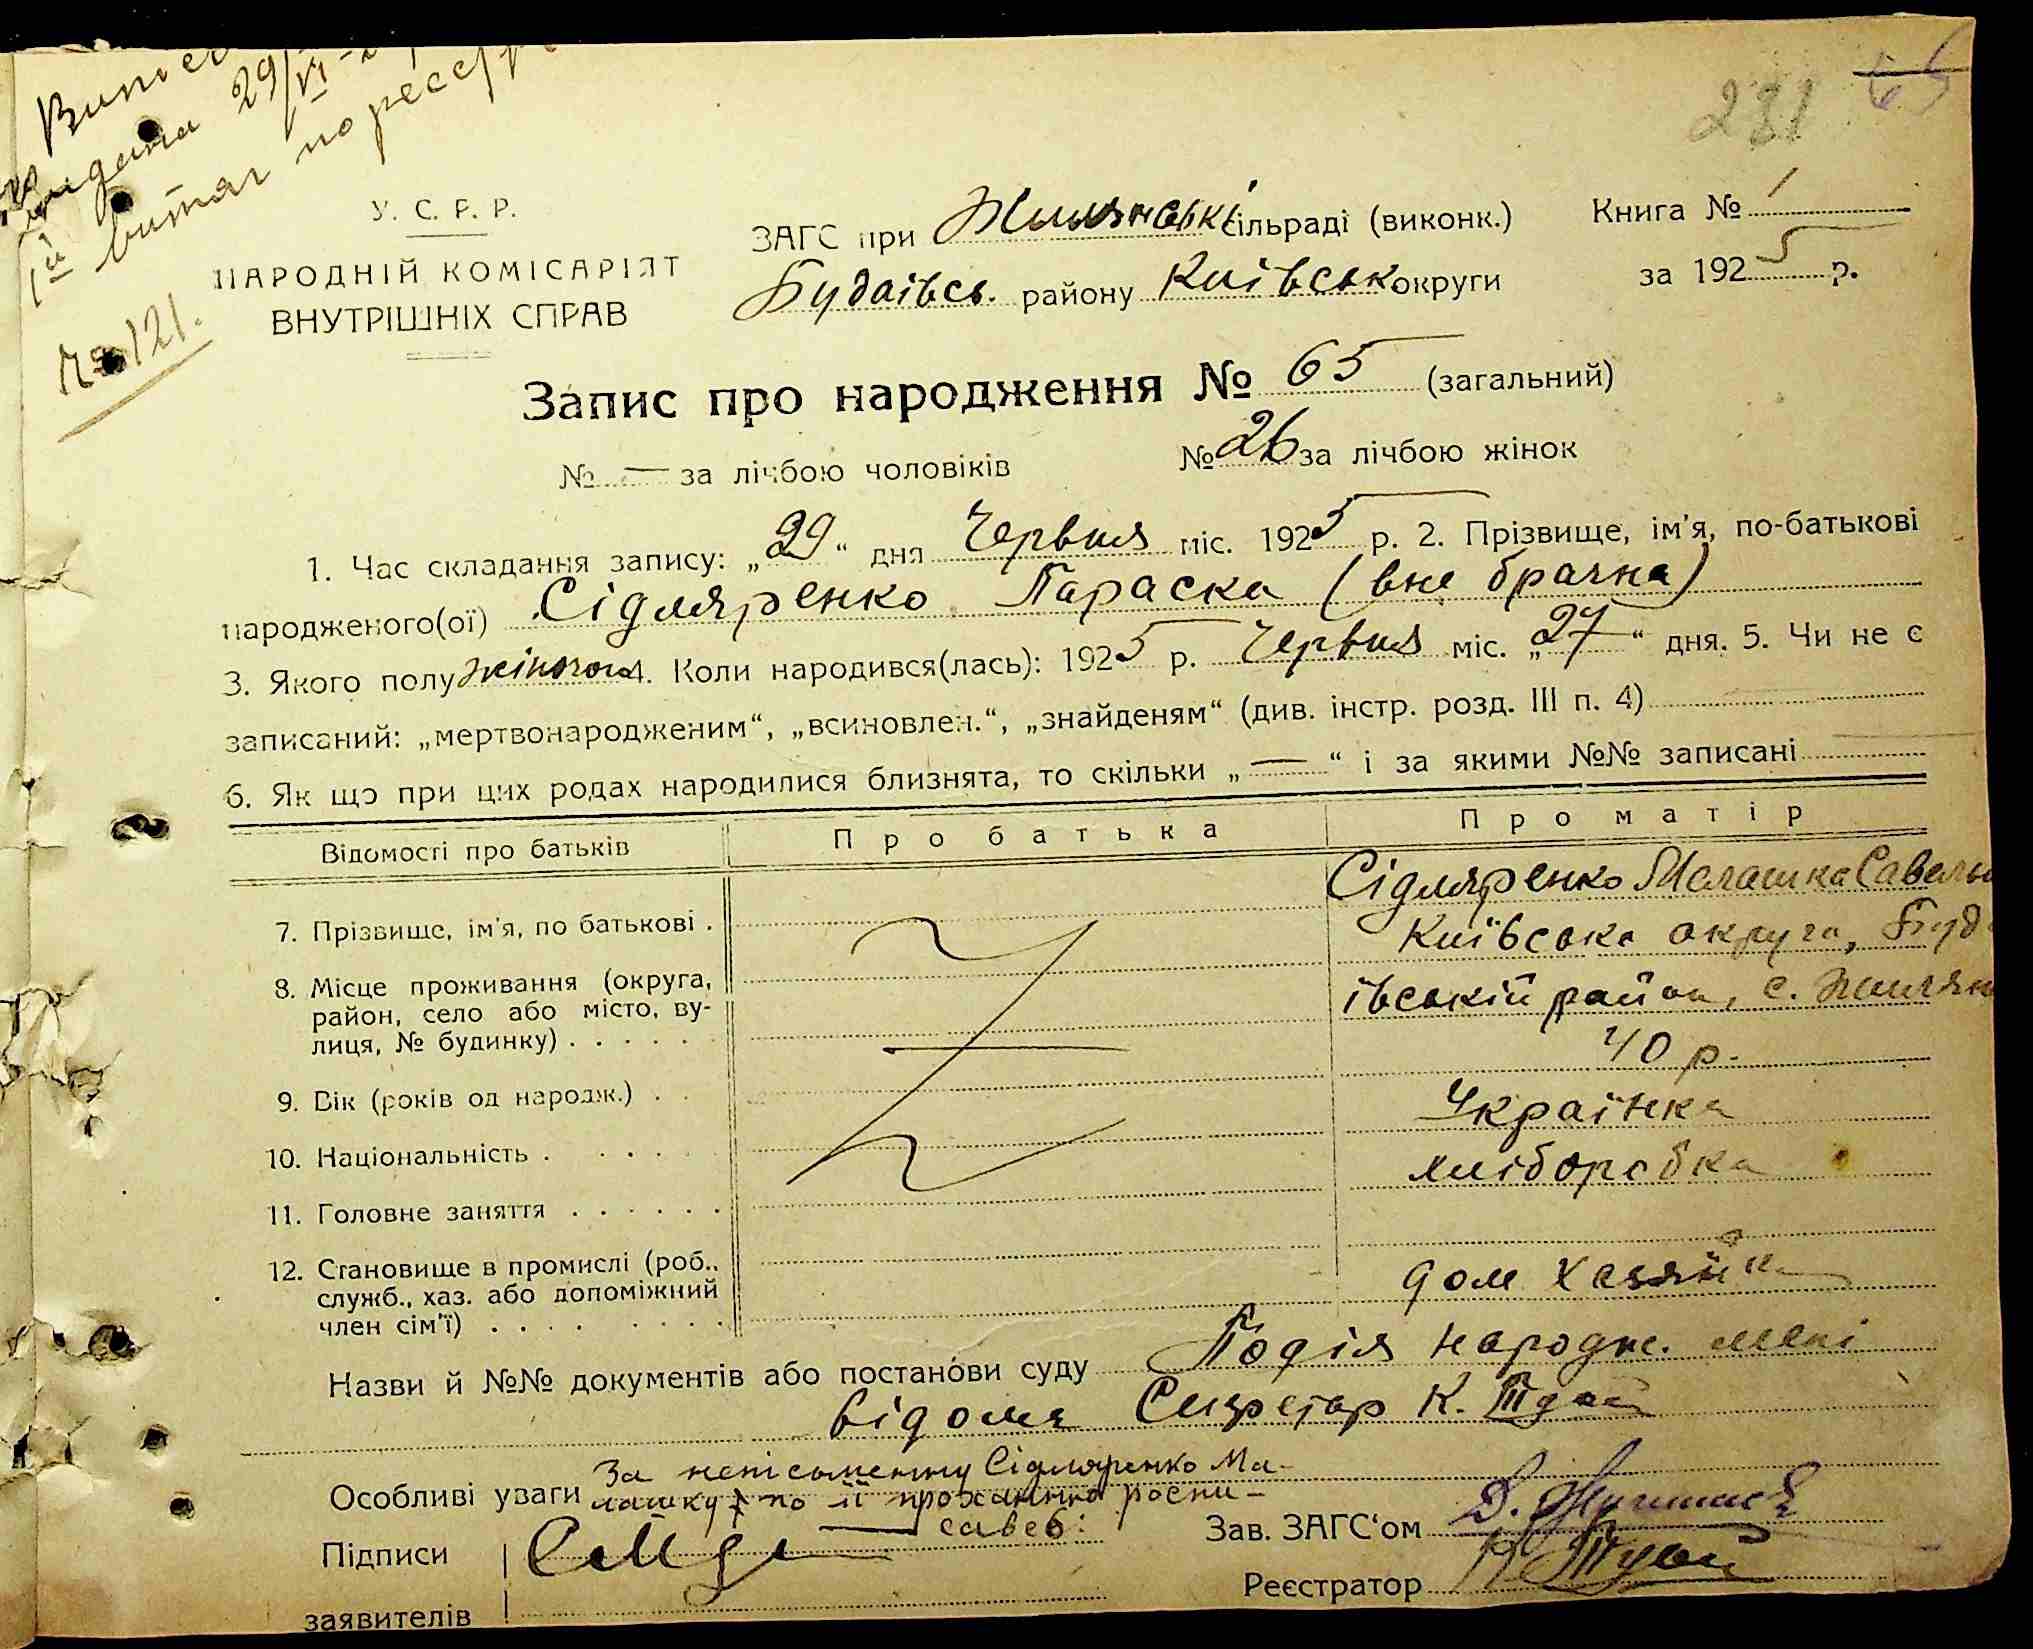 видана 29/VI
1й витяг по реєстр
№ 121.
231 65
У. С. Р. Р.
НАРОДНІЙ КОМІСАРІЯТ
ВНУТРІШНІХ СПРАВ
ЗАГС при Жилянські сільраді (виконк.) Книга № 1
Будаівсь. району Київськ округи за 1925 р.
Запис про народження № 65 (загальний)
№ — за лічбою чоловіків № 26 за лічбою жінок
1. Час складання запису: „29“ дня Червня міс. 1925 р. 2. Прізвище, ім'я, по-батькові
народженого(ої) Сідляренко Параска (вне брачна)
3. Якого полу жіночого 4. Коли народився(лась): 1925 р. Червня міс. „27“ дня. 5. Чи не є
записаний: „мертвонародженим“, „всиновлен.“, „знайденям“ (див. інстр. розд. III п. 4)
6. Як що при цих родах народилися близнята, то скільки „—“ і за якими №№ записані
Відомості про батьків Про батька Про матір
7. Прізвище, ім'я, по батькові . Сідляренко Мелашка Савель
8. Місце проживання (округа, Київська округа, Буд
район, село або місто, ву- івській район, с. Жилян
лиця, № будинку) . . . . . .
9. Вік (років од народж.) . . 40 р.
10. Національність . . . . . Українка
11. Головне заняття . . . . . . хліборобка
12. Становище в промислі (роб.,
служб., хаз. або допоміжний дом хазяйка
член сім'ї) . . . . . . . .
Назви й №№ документів або постанови суду Подія народж. мені
відома Секретар К.
Особливі уваги За неписьменну Сідляренко Ма-
лашку по її проханню роспи-
савсь:
Підписи
заявителів
Зав. ЗАГС'ом Д.
Реєстратор К.